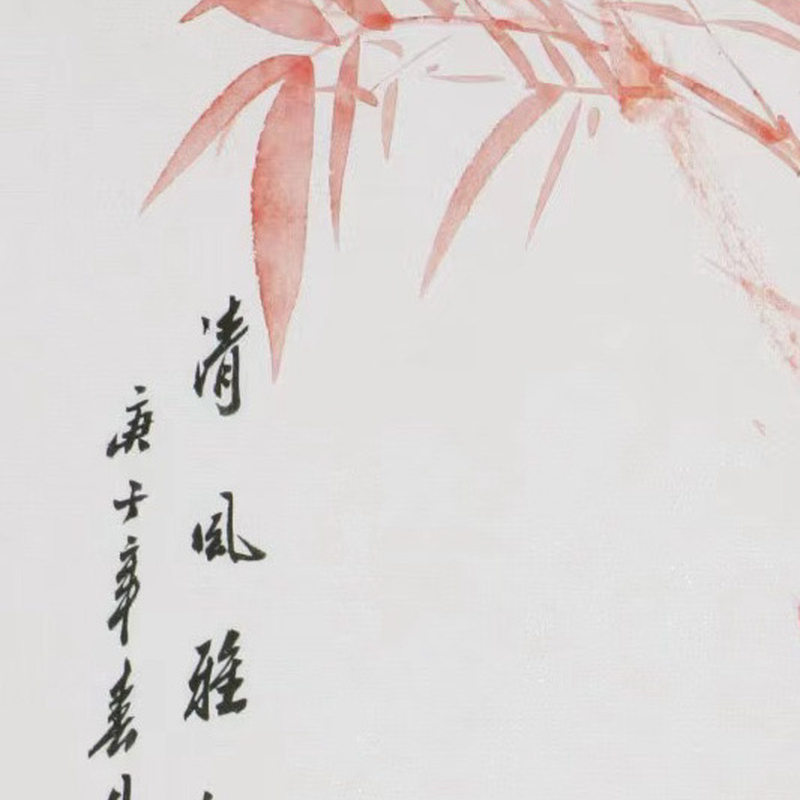 清风雅
庚子年春